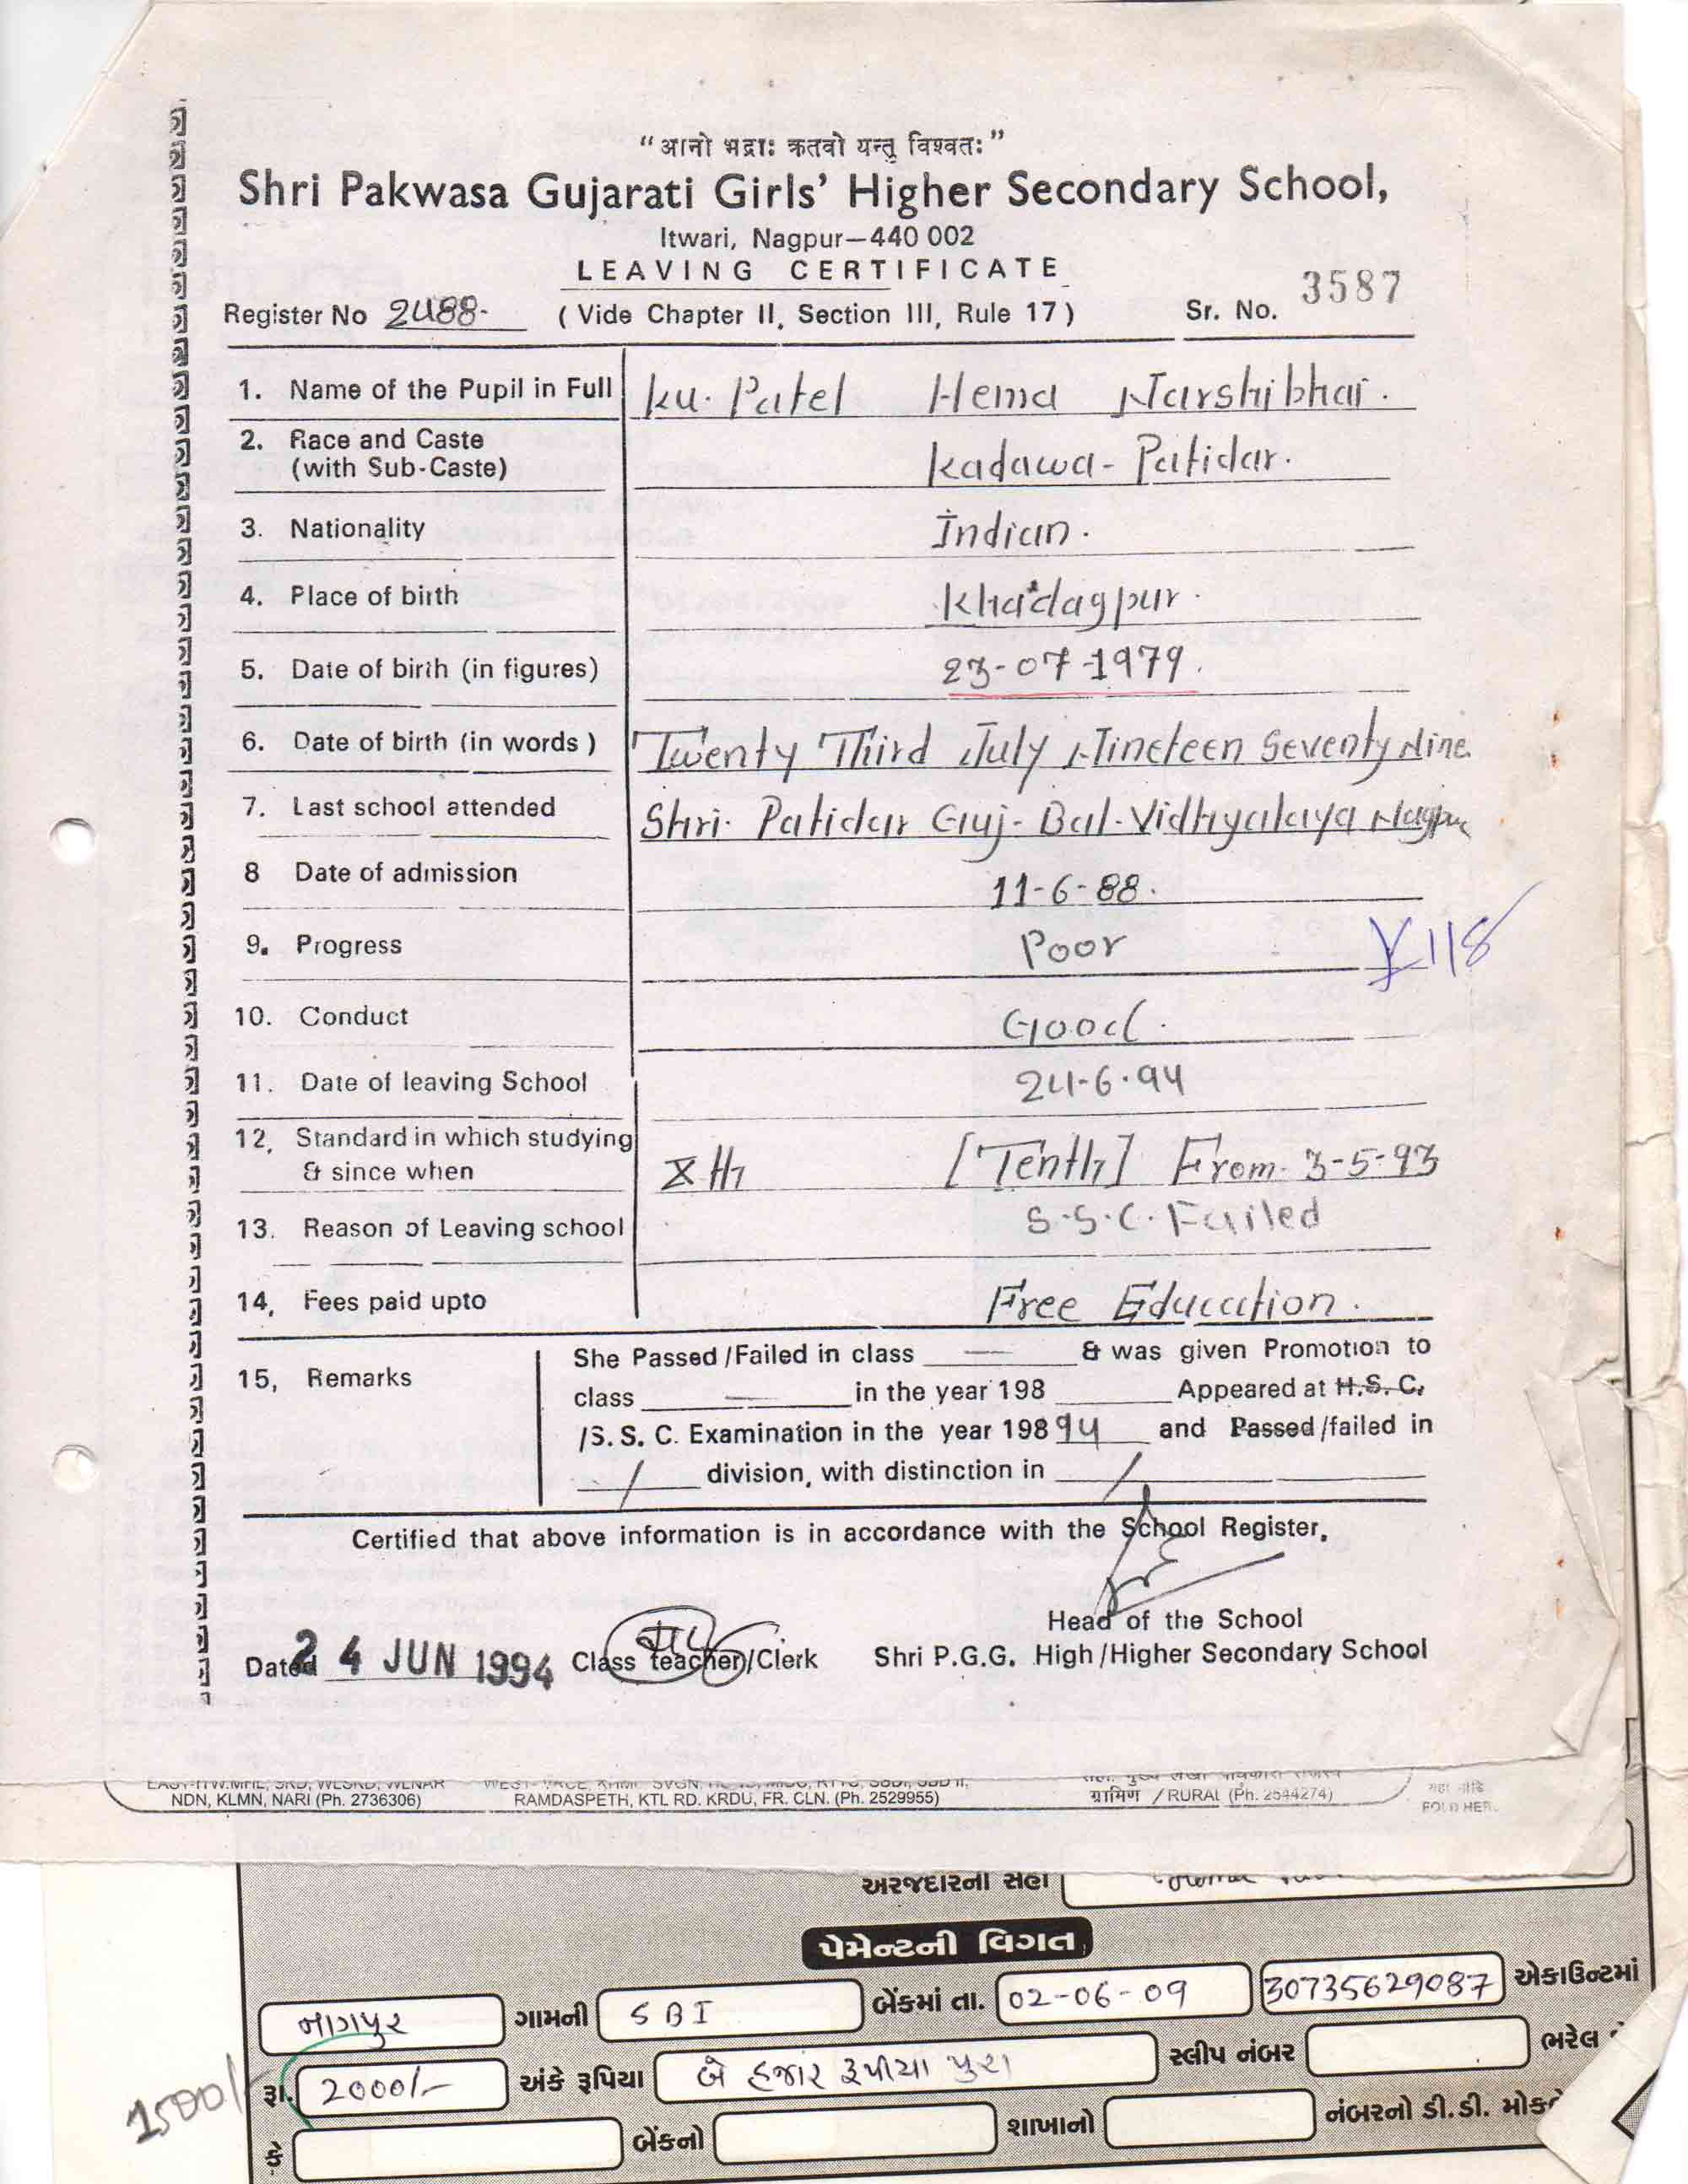 “आनो भद्राः क्रतवो यन्तु विश्वतः”
Shri Pakwasa Gujarati Girls' Higher Secondary School,
Itwari, Nagpur—440 002
LEAVING CERTIFICATE
Register No 2488- (Vide Chapter II, Section III, Rule 17) Sr. No. 3587
1. Name of the Pupil in Full Ku. Patel Hema Narshibhai.
2. Race and Caste
(with Sub-Caste) Kadawa-Patidar.
3. Nationality Indian.
4. Place of birth Khadagpur.
5. Date of birth (in figures) 23-07-1979.
6. Date of birth (in words) Twenty Third July Nineteen Seventy Nine.
7. Last school attended Shri. Patidar Guj- Bal-Vidhyalaya Nagpur
8 Date of admission 11-6-88.
9. Progress Poor
118
10. Conduct Good.
11. Date of leaving School 24-6-94
12, Standard in which studying
& since when Xth [Tenth] From 3-5-93
13. Reason of Leaving school S.S.C. Failed
14, Fees paid upto Free Education.
15, Remarks She Passed/Failed in class — & was given Promotion to
class — in the year 198 Appeared at H.S.C.
/S. S. C. Examination in the year 198 94 and Passed/failed in
/ division, with distinction in /
Certified that above information is in accordance with the School Register,
Head of the School
Dated 24 JUN 1994 Class teacher/Clerk Shri P.G.G. High/Higher Secondary School
NDN, KLMN, NARI (Ph. 2736306) RAMDASPETH, KTL RD. KRDU, FR. CLN. (Ph. 2529955) ग्रामिण / RURAL (Ph. 2544274)
FOLD HER
અરજદારની સહી
પેમેન્ટની વિગત
નાગપુર ગામની SBI બેંકમાં તા. 02-06-09 30735629087 એકાઉન્ટમાં
રૂા. 2000/- અંકે રૂપિયા બે હજાર રૂપીયા પુરા સ્લીપ નંબર ભરેલ
1500/-
કે બેંકનો શાખાનો નંબરનો ડી.ડી.